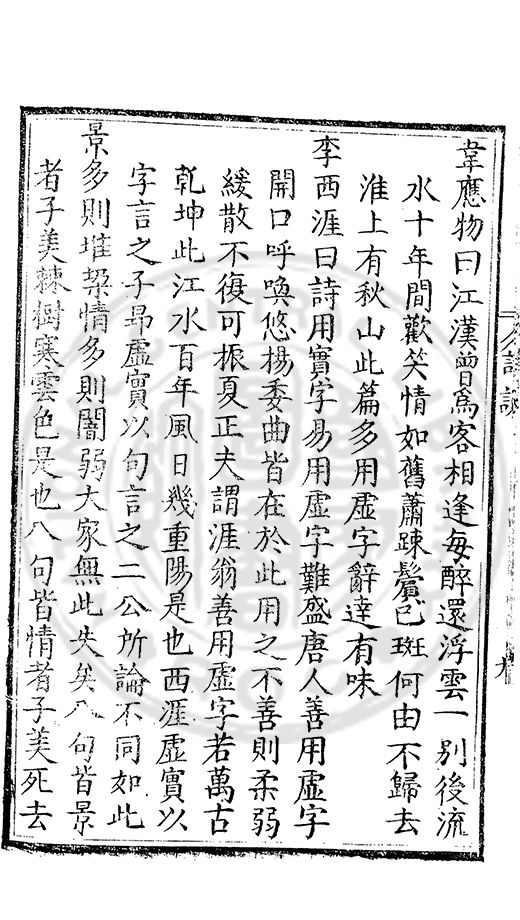 韋應物曰江漢曾爲客相逢每醉還浮雲一別後流
水十年間歡笑情如舊蕭踈鬢已斑何由不歸去
淮上有秋山此篇多用虛字辭達有味
李西涯曰詩用實字易用虛字難盛唐人善用虛字
開口呼喚悠揚委曲皆在於此用之不善則柔弱
緩散不復可振夏正夫謂涯翁善用虛字若萬古
乾坤此江水百年風日幾重陽是也西涯虛實以
字言之子昻虛實以句言之二公所論不同如此
景多則堆垜情多則闇弱大家無此失矣八句皆景
者子美棘樹寒雲色是也八句皆情者子美死去